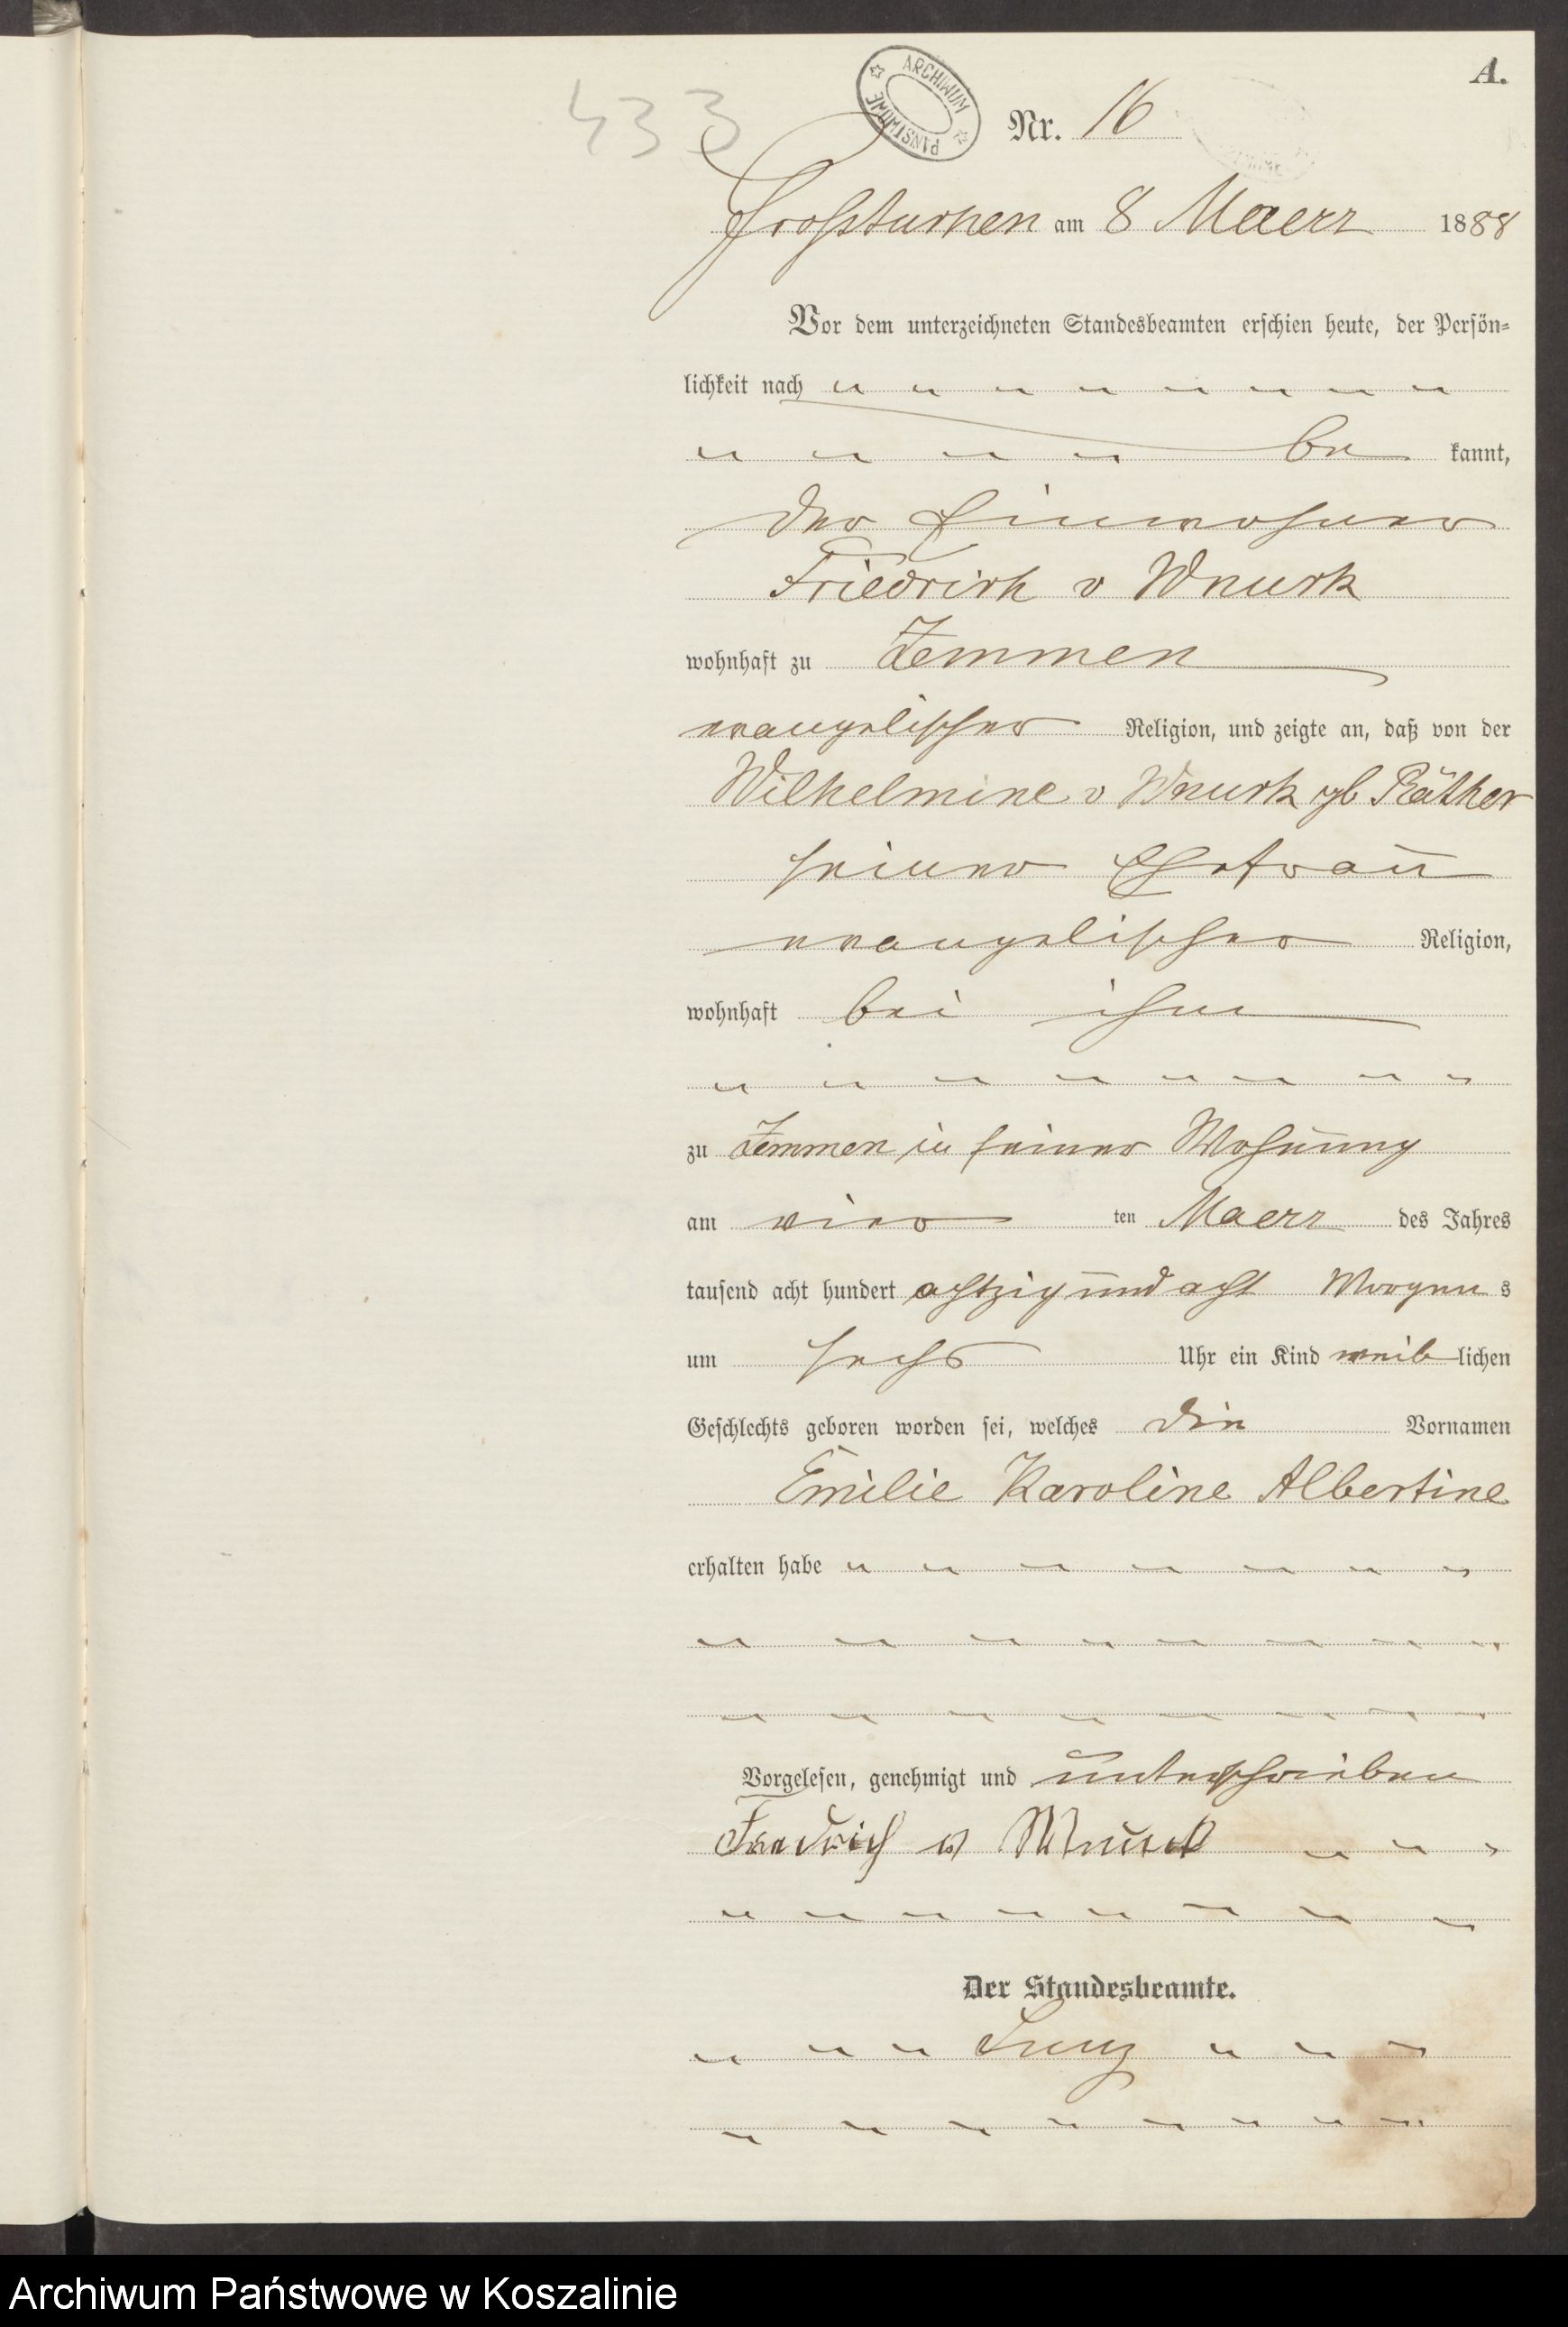 A.
433
ARCHIWUM PAŃSTWOWE
Nr. 16
Großtuchen am 8 Maerz 1888
Vor dem unterzeichneten Standesbeamten erschien heute, der Persön-
lichkeit nach
be kannt,
der Einwohner
Friedrich v Wnuck
wohnhaft zu Zemmen
evangelischer Religion, und zeigte an, daß von der
Wilhelmine v Wnuck gb Räther
seiner Ehefrau
evangelischer Religion,
wohnhaft bei ihm
zu Zemmen in seiner Wohnung
am vier ten Maerz des Jahres
tausend acht hundert achtzig und acht Morgen s
um sechs Uhr ein Kind weib lichen
Geschlechts geboren worden sei, welches die Vornamen
Emilie Karoline Albertine
erhalten habe
Vorgelesen, genehmigt und unterschrieben
Friedrich v Wnuck
Der Standesbeamte.
Archiwum Państwowe w Koszalinie